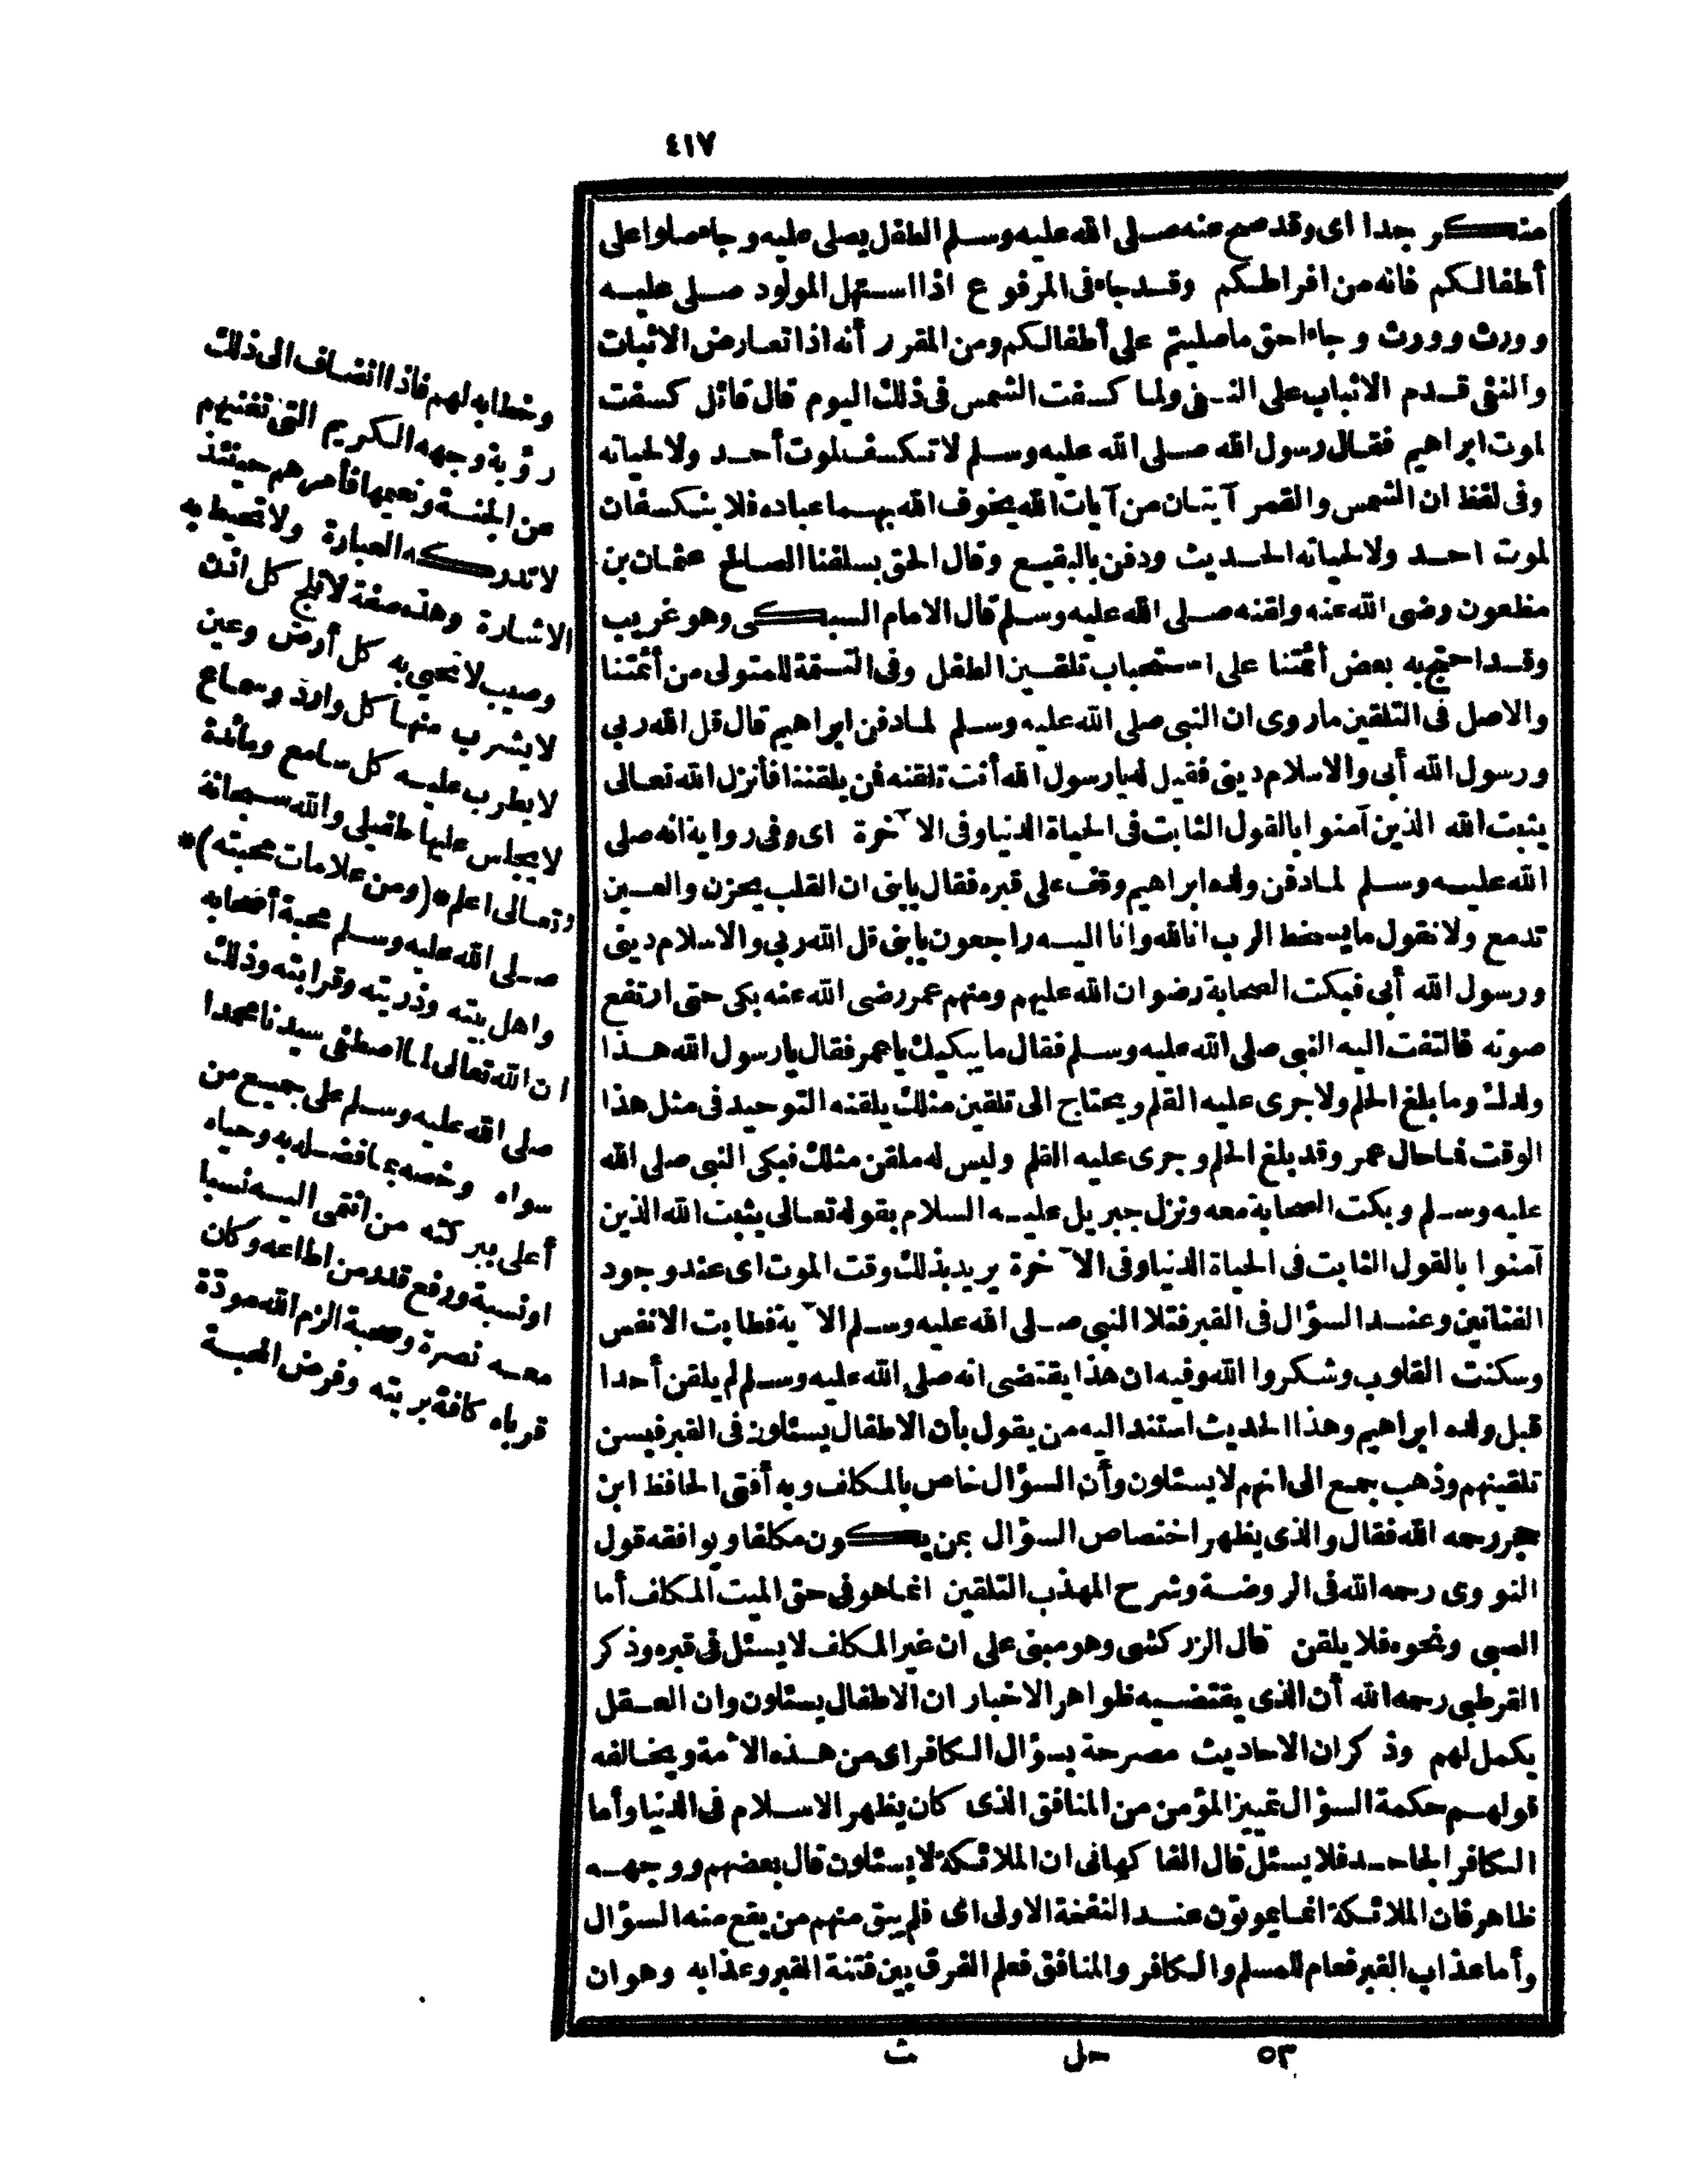 ٤١٧
منكر جدا اى وقد صح عنه صلى الله عليه وسلم الطفل يصلى عليه وجاء صلوا على
أطفالكم فانه من افراطكم وقد جاء فى المرفوع اذا استهل المولود صلى عليه
وورث وورث وجاء احق ما صليتم على أطفالكم ومن المقرر أنه اذا تعارض الاثبات
والنفى قدم الاثبات على النفى ولما كسفت الشمس فى ذلك اليوم قال قائل كسفت
لموت ابراهيم فقال رسول الله صلى الله عليه وسلم لا تكسف لموت أحد ولا لحياته
وفى لفظ ان الشمس والقمر آيتان من آيات الله يخوف الله بهما عباده فلا ينكسفان
لموت احد ولا لحياته الحديث ودفن بالبقيع وقال الحق بسلفنا الصالح عثمان بن
مظعون رضى الله عنه ولقنه صلى الله عليه وسلم قال الامام السبكى وهو غريب
وقد احتج به بعض أئمتنا على استحباب تلقين الطفل وفى التتمة للمتولى من أئمتنا
والاصل فى التلقين ماروى ان النبى صلى الله عليه وسلم لما دفن ابراهيم قال قل الله ربى
ورسول الله أبى والاسلام دينى فقيل له يارسول الله أنت تلقنه فن يلقننا فأنزل الله تعالى
يثبت الله الذين آمنوا بالقول الثابت فى الحياة الدنيا وفى الآخرة اى وفى رواية انه صلى
الله عليه وسلم لما دفن ولده ابراهيم وقف على قبره فقال يابنى ان القلب يحزن والعين
تدمع ولا نقول ما يسخط الرب انا لله وانا اليه راجعون يا بنى قل الله ربى والاسلام دينى
ورسول الله أبى فبكت الصحابة رضوان الله عليهم ومنهم عمر رضى الله عنه بكى حتى ارتفع
صوته فالتفت اليه النبى صلى الله عليه وسلم فقال ما يبكيك ياعمر فقال يارسول الله هذا
ولدك وما بلغ الحلم ولا جرى عليه القلم ويحتاج الى تلقين مثلك يلقنه التوحيد فى مثل هذا
الوقت فاحال عمر وقد بلغ الحلم وجرى عليه القلم وليس له ملقن مثلك فبكى النبى صلى الله
عليه وسلم وبكت الصحابة معه ونزل جبريل عليه السلام بقوله تعالى يثبت الله الذين
آمنوا بالقول الثابت فى الحياة الدنيا وفى الآخرة يريد بذلك وقت الموت اى عند وجود
الفتانين وعند السؤال فى القبر فتلا النبى صلى الله عليه وسلم الآية فطابت الانفس
وسكنت القلوب وشكروا الله وفيه ان هذا يقتضى انه صلى الله عليه وسلم لم يلقن أحدا
قبل ولده ابراهيم وهذا الحديث استند اليه من يقول بأن الاطفال يسئلون فى القبر فيسن
تلقينهم وذهب جمع الى انهم لا يسئلون وأن السؤال خاص بالمكلف وبه أفتى الحافظ ابن
حجر رحمه الله فقال والذى يظهر اختصاص السؤال بمن يكون مكلفا ويوافقه قول
النووى رحمه الله فى الروضة وشرح المهذب التلقين انما هو فى حق الميت المكلف أما
الصبى ونحوه فلا يلقن قال الزركشى وهو مبنى على ان غير المكلف لا يسئل فى قبره وذكر
القرطبى رحمه الله أن الذى يقتضيه ظواهر الاخبار ان الاطفال يسئلون وان العقل
يكمل لهم وذكر ان الاحاديث مصرحة بسؤال الكافر اى من هذه الامة ويخالفه
قولهم حكمة السؤال تمييز المؤمن من المنافق الذى كان يظهر الاسلام فى الدنيا وأما
الكافر الجاحد فلا يسئل قال الفاكهانى ان الملائكة لا يسئلون قال بعضهم ووجهه
ظاهر فان الملائكة انما يموتون عند النفخة الاولى اى فلم يبق منهم من يقع منه السؤال
وأما عذاب القبر فعام للمسلم والكافر والمنافق فعلم الفرق بين فتنة القبر وعذابه وهو ان
وخطابه لهم فاذا انضاف الى ذلك
رؤية وجهه الكريم التى تغنيهم
عن الجنة ونعيمها فأمرهم حينئذ
لا تدركه العبارة ولا تحيط به
الاشارة وهذه صفة لا تلج كل اذن
وصيب لا تحيى به كل أرض وعين
لا يشرب منها كل وارد وسماع
لا يطرب عليه كل سامع ومائدة
لا يجلس عليها طفيلى والله سبحانه
وتعالى اعلم *(ومن علامات محبته)*
صلى الله عليه وسلم محبة أصحابه
واهل بيته وذريته وقرابته وذلك
ان الله تعالى لما اصطفى سيدنا محمدا
صلى الله عليه وسلم على جميع من
سواه وخصه بما فضله به وحباه
أعلى ببركته من انتمى اليه نسبا
او نسبة ورفع قدر من اطاعه وكان
معه نصرة وصحبة الزم الله مودة
قرباه كافة بريته وفرض المحبة
٥٣ حل ث